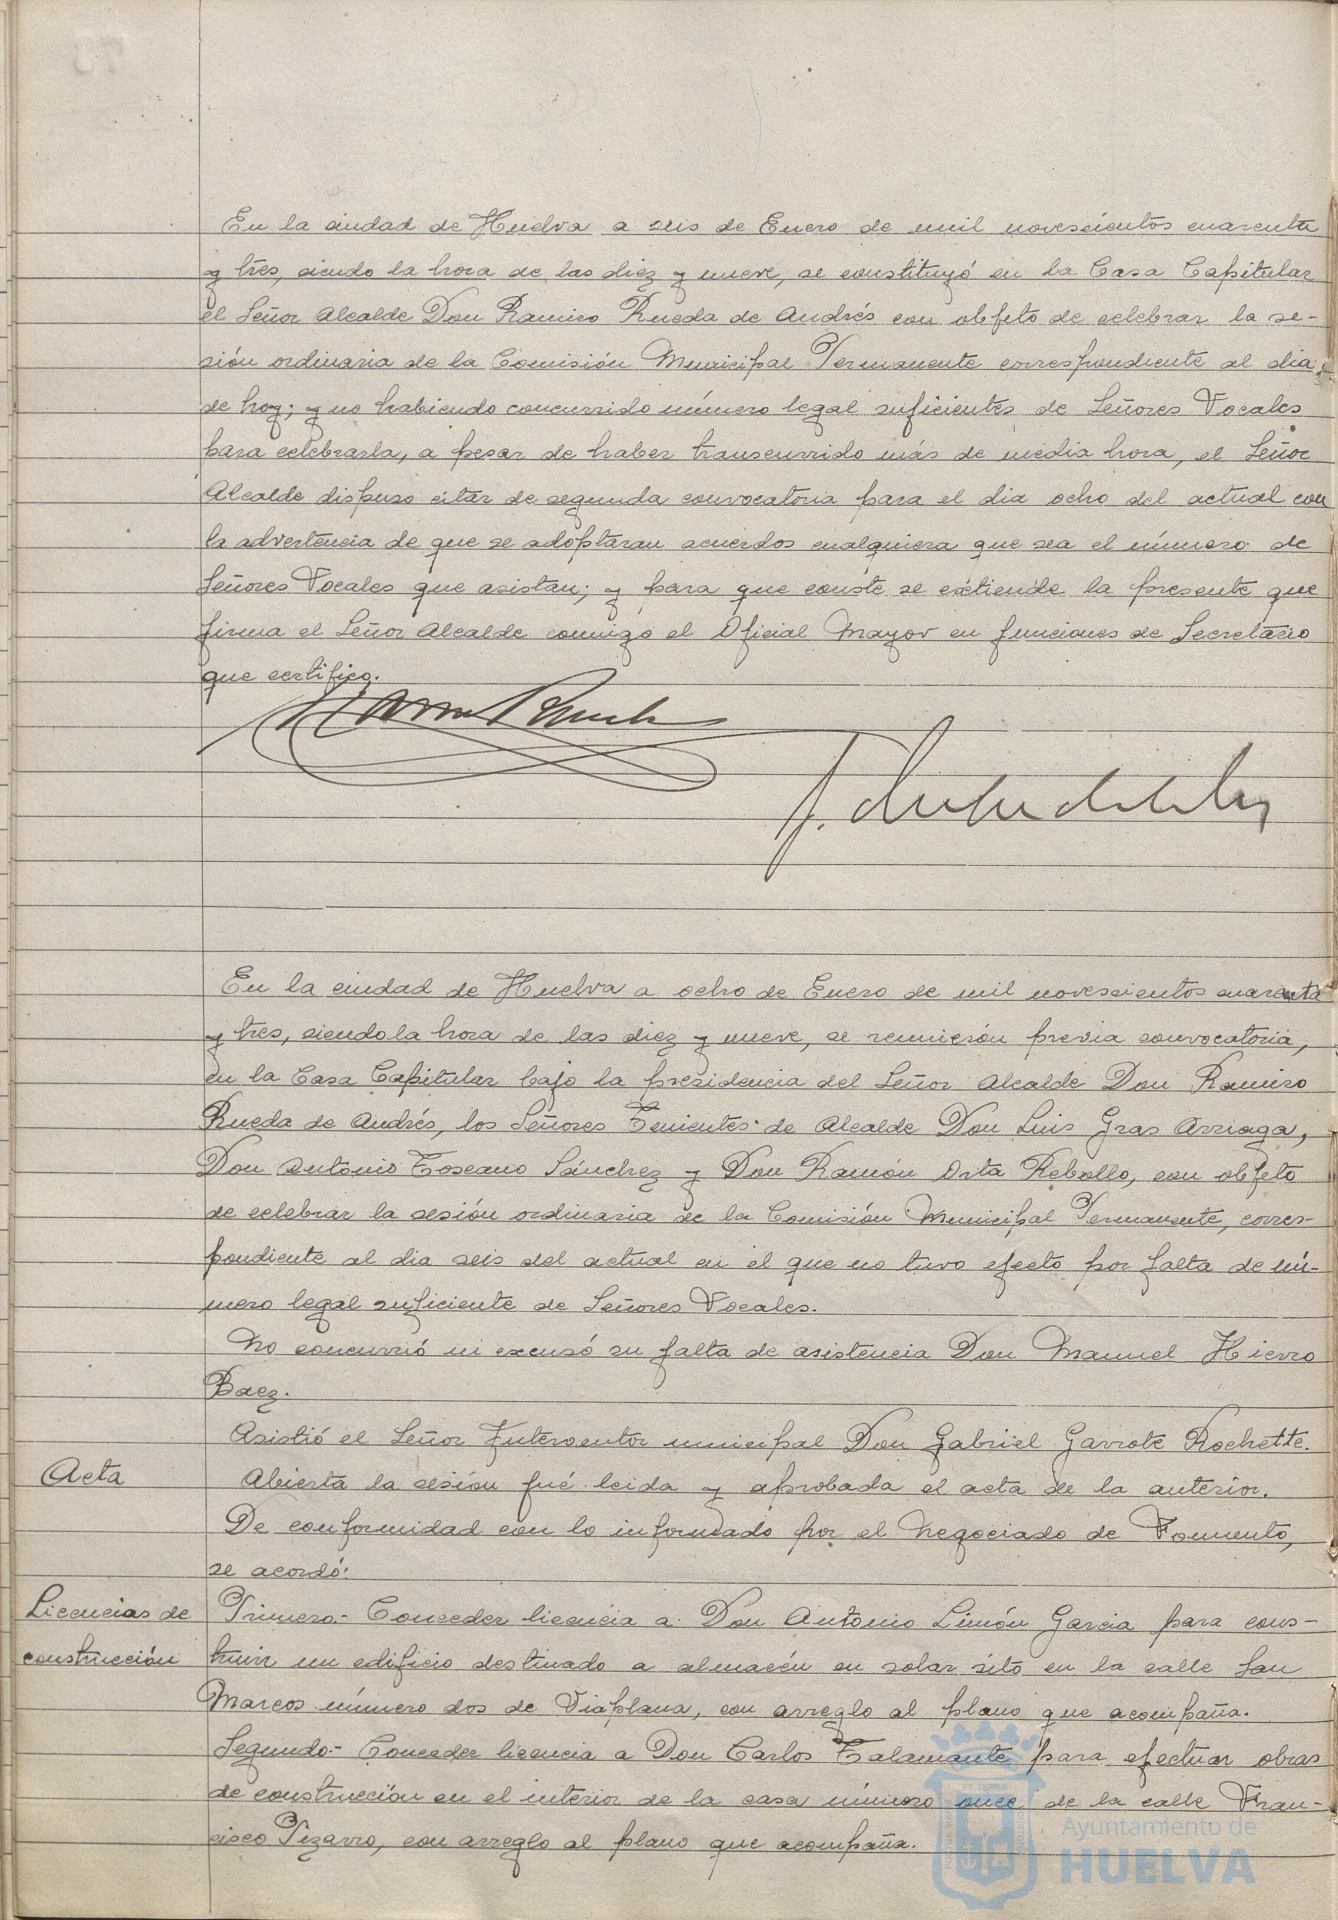 En la ciudad de Huelva a seis de Enero de mil novescientos cuarenta
y tres, siendo la hora de las diez y nueve, se constituyó en la Casa Capitular
el Señor Alcalde Don Ramiro Rueda de Andrés con objeto de celebrar la se-
sión ordinaria de la Comisión Municipal Permanente correspondiente al dia
de hoy; y no habiendo concurrido número legal suficientes de Señores Vocales
para celebrarla, a pesar de haber transcurrido más de media hora, el Señor
Alcalde dispuso citar de segunda convocatoria para el dia ocho del actual con
la advertencia de que se adoptaran acuerdos cualquiera que sea el número de
Señores Vocales que asistan; y para que conste se extiende la presente que
firma el Señor Alcalde conmigo el Oficial Mayor en funciones de Secretario
que certifico.
En la ciudad de Huelva a ocho de Enero de mil novescientos cuarenta
y tres, siendo la hora de las diez y nueve, se reunieron previa convocatoria,
en la Casa Capitular bajo la presidencia del Señor Alcalde Don Ramiro
Rueda de Andrés, los Señores Tenientes de Alcalde Don Luis Gras Arriaga,
Don Antonio Toscano Sánchez y Don Ramón Orta Rebollo, con objeto
de celebrar la sesión ordinaria de la Comisión Municipal Permanente, corres-
pondiente al dia seis del actual en el que no tuvo efecto por falta de nú-
mero legal suficiente de Señores Vocales.
No concurrió ni excusó su falta de asistencia Don Manuel Hierro
Baez.
Asistió el Señor Interventor municipal Don Gabriel Garrote Rochette.
Acta
Abierta la sesión fué leida y aprobada el acta de la anterior.
De conformidad con lo informado por el Negociado de Fomento,
se acordó:
Licencias de
construcción
Primero.- Conceder licencia a Don Antonio Limón Garcia para cons-
truir un edificio destinado a almacén en solar sito en la calle San
Marcos número dos de Viaplana, con arreglo al plano que acompaña.
Segundo.- Conceder licencia a Don Carlos Talamante para efectuar obras
de construcción en el interior de la casa número once de la calle Fran-
cisco Pizarro, con arreglo al plano que acompaña.
Ayuntamiento de
HUELVA